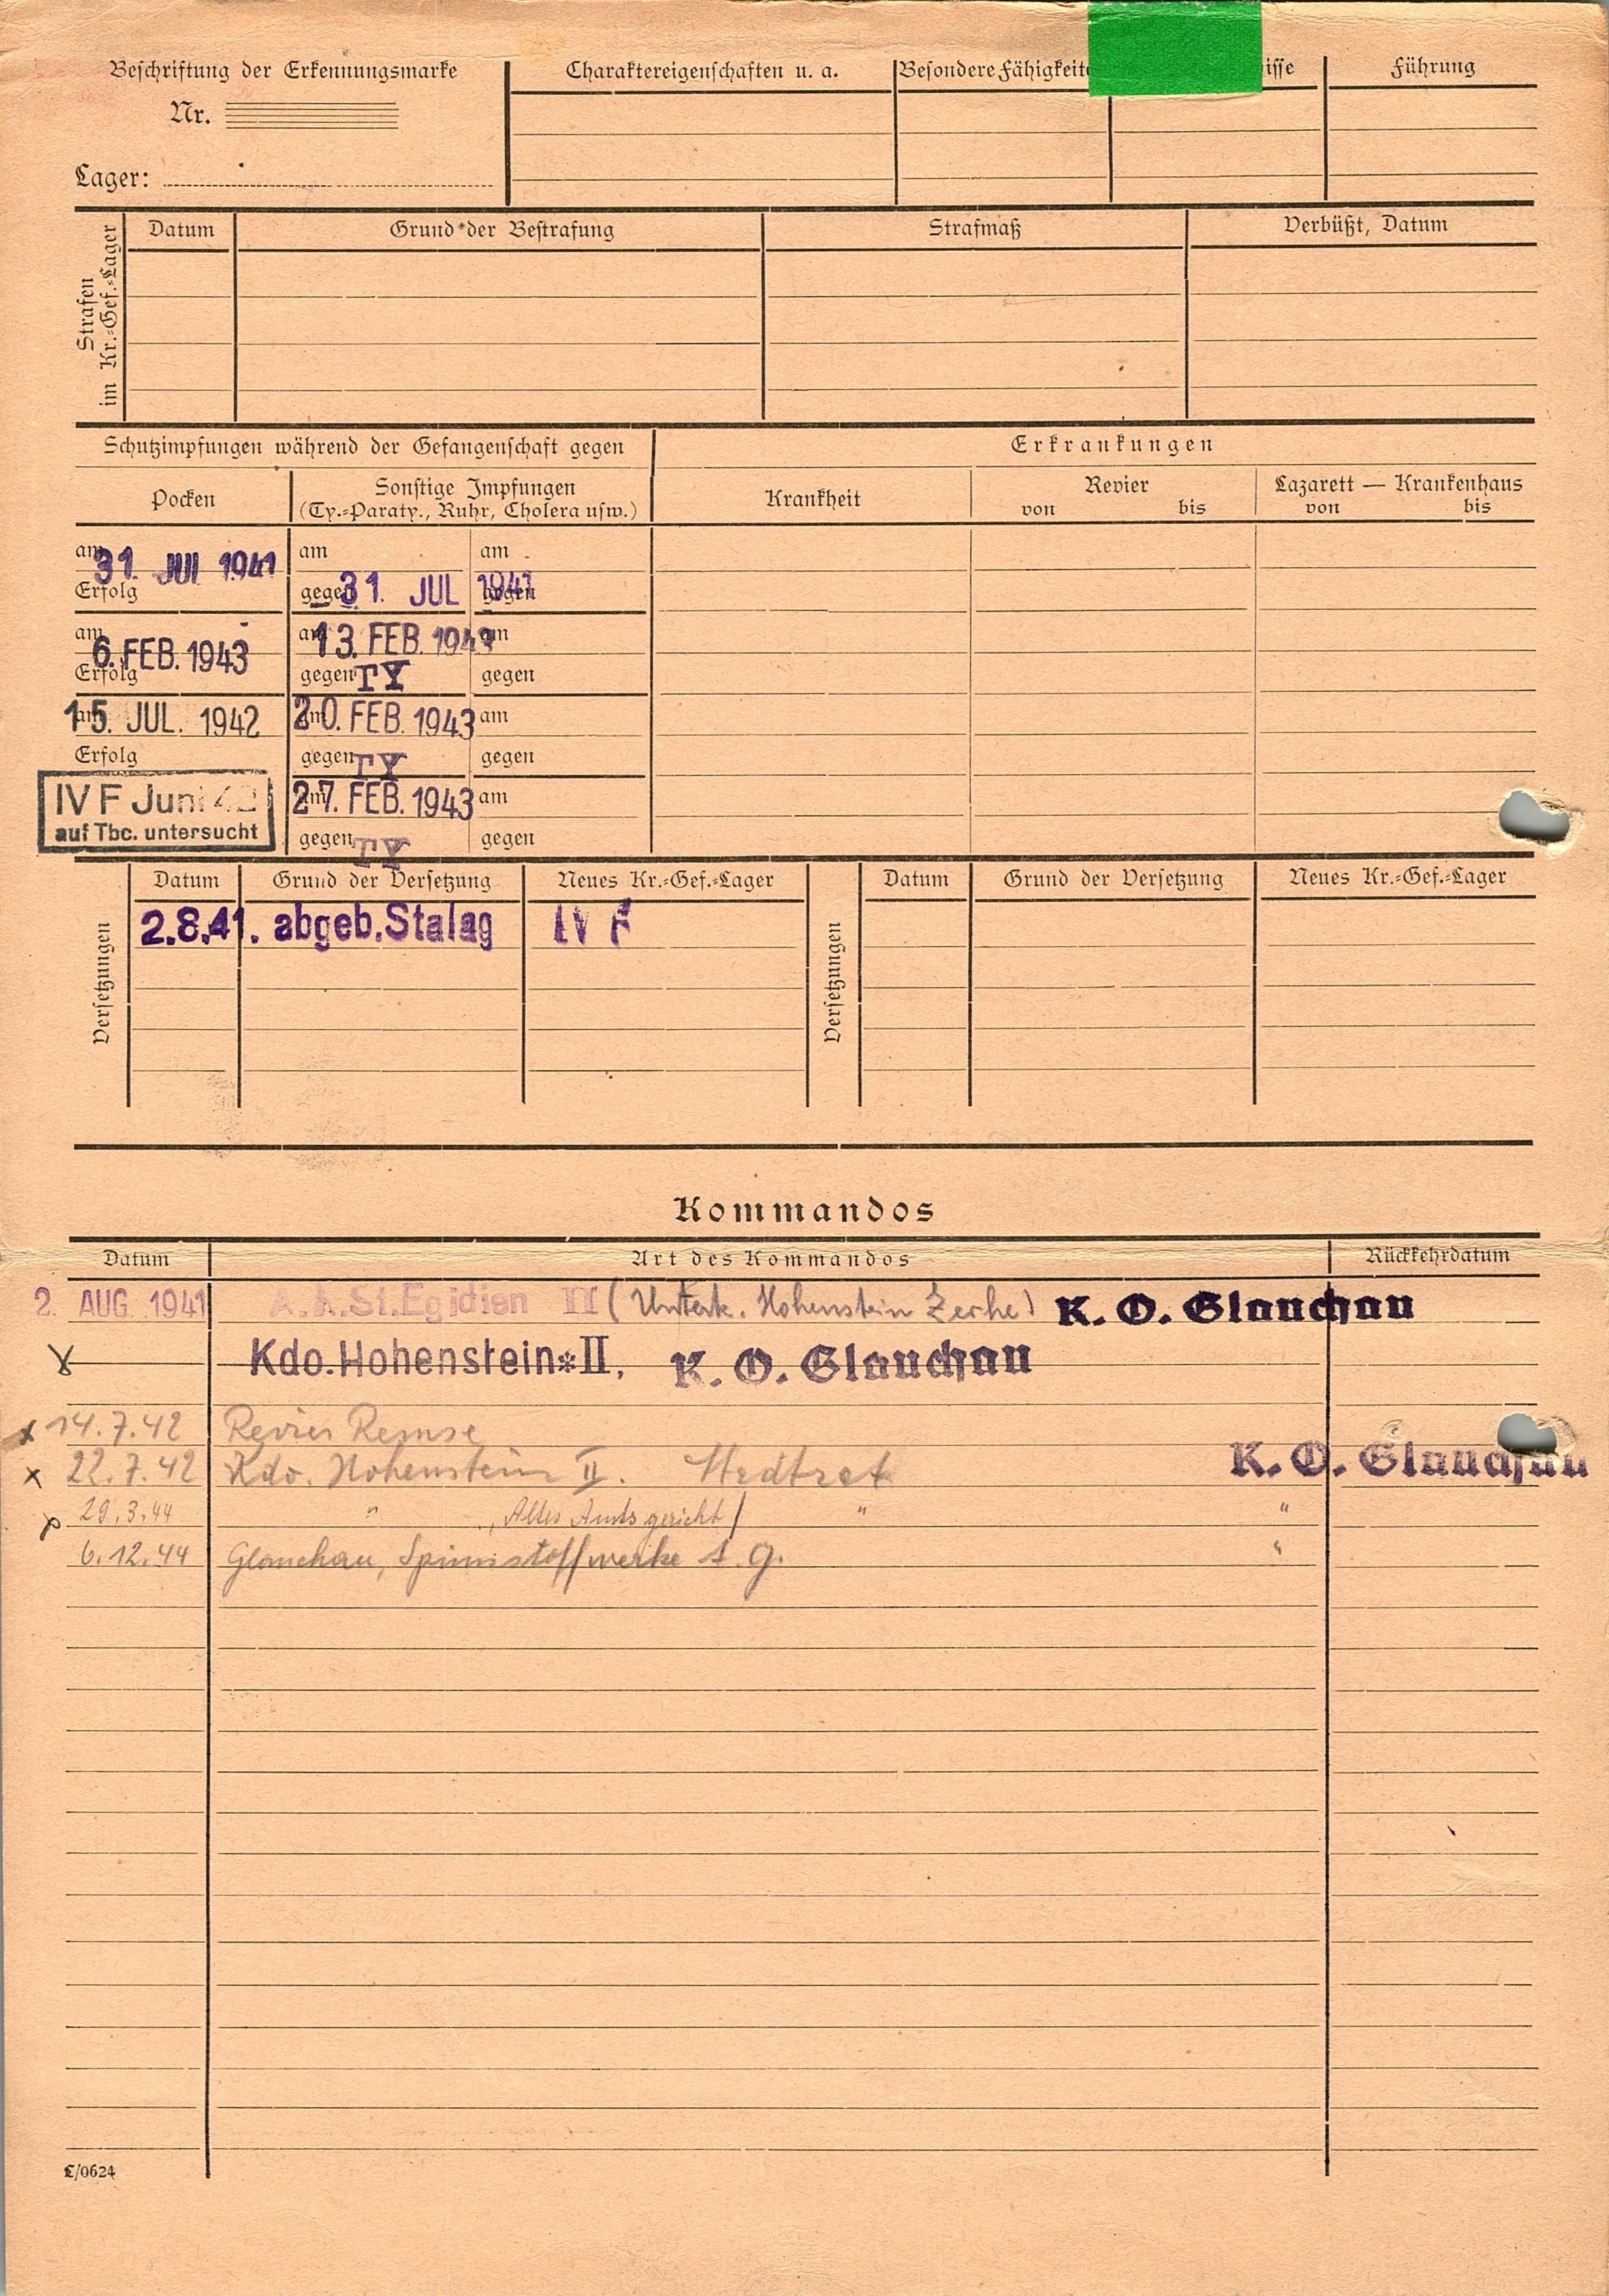 Beschriftung der Erkennungsmarke
Nr.
Lager:
Charaktereigenschaften u. a.
Besondere Fähigkeite
isse
Führung
Strafen
im Kr.-Gef.-Lager
Datum
Grund der Bestrafung
Strafmaß
Verbüßt, Datum
Schutzimpfungen während der Gefangenschaft gegen
Erkrankungen
Pocken
Sonstige Impfungen
(Ty.-Paraty., Ruhr, Cholera usw.)
Krankheit
Revier
von bis
Lazarett — Krankenhaus
von bis
am 31. JUL 1941 am am
Erfolg gegen 31. JUL 1941 gegen
am 6. FEB. 1943 am 13. FEB. 1943 am
Erfolg gegen TY gegen
am 15. JUL. 1942 am 20. FEB. 1943 am
Erfolg gegen TY gegen
IV F Juni 42 am 27. FEB. 1943 am
auf Tbc. untersucht gegen TY gegen
Versetzungen
Datum Grund der Versetzung Neues Kr.-Gef.-Lager
2.8.41. abgeb. Stalag IV F
Versetzungen
Datum Grund der Versetzung Neues Kr.-Gef.-Lager
Kommandos
Datum Art des Kommandos Rückkehrdatum
2. AUG. 1941 A.K.St.Egidien II (Unterk. Hohenstein Zeche) K. O. Glauchau
Kdo. Hohenstein * II, K. O. Glauchau
x 14.7.42 Revier Remse
x 22.7.42 Kdo. Hohenstein II. K. O. Glauchau
29.3.44 " Altes Amtsgericht / " "
6.12.44 Glauchau, Spinnstoffwerke "
L/0624